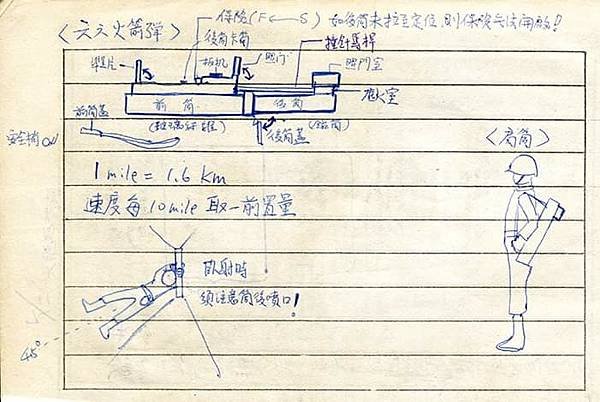 〈六六火箭弹〉
保險(F←S) 如後筒未拉至定位,則保險無法開啟!
後筒卡筍
板机
照门
撞針馬捍
照門室
準星片
前筒
後筒
(玻璃纤維)
(鋁筒)
前筒蓋
後筒蓋
安全梢
1 mile = 1.6 km
速度每10mile取一前置量
〈肩筒〉
臥射時
须注意筒後噴口!
45°